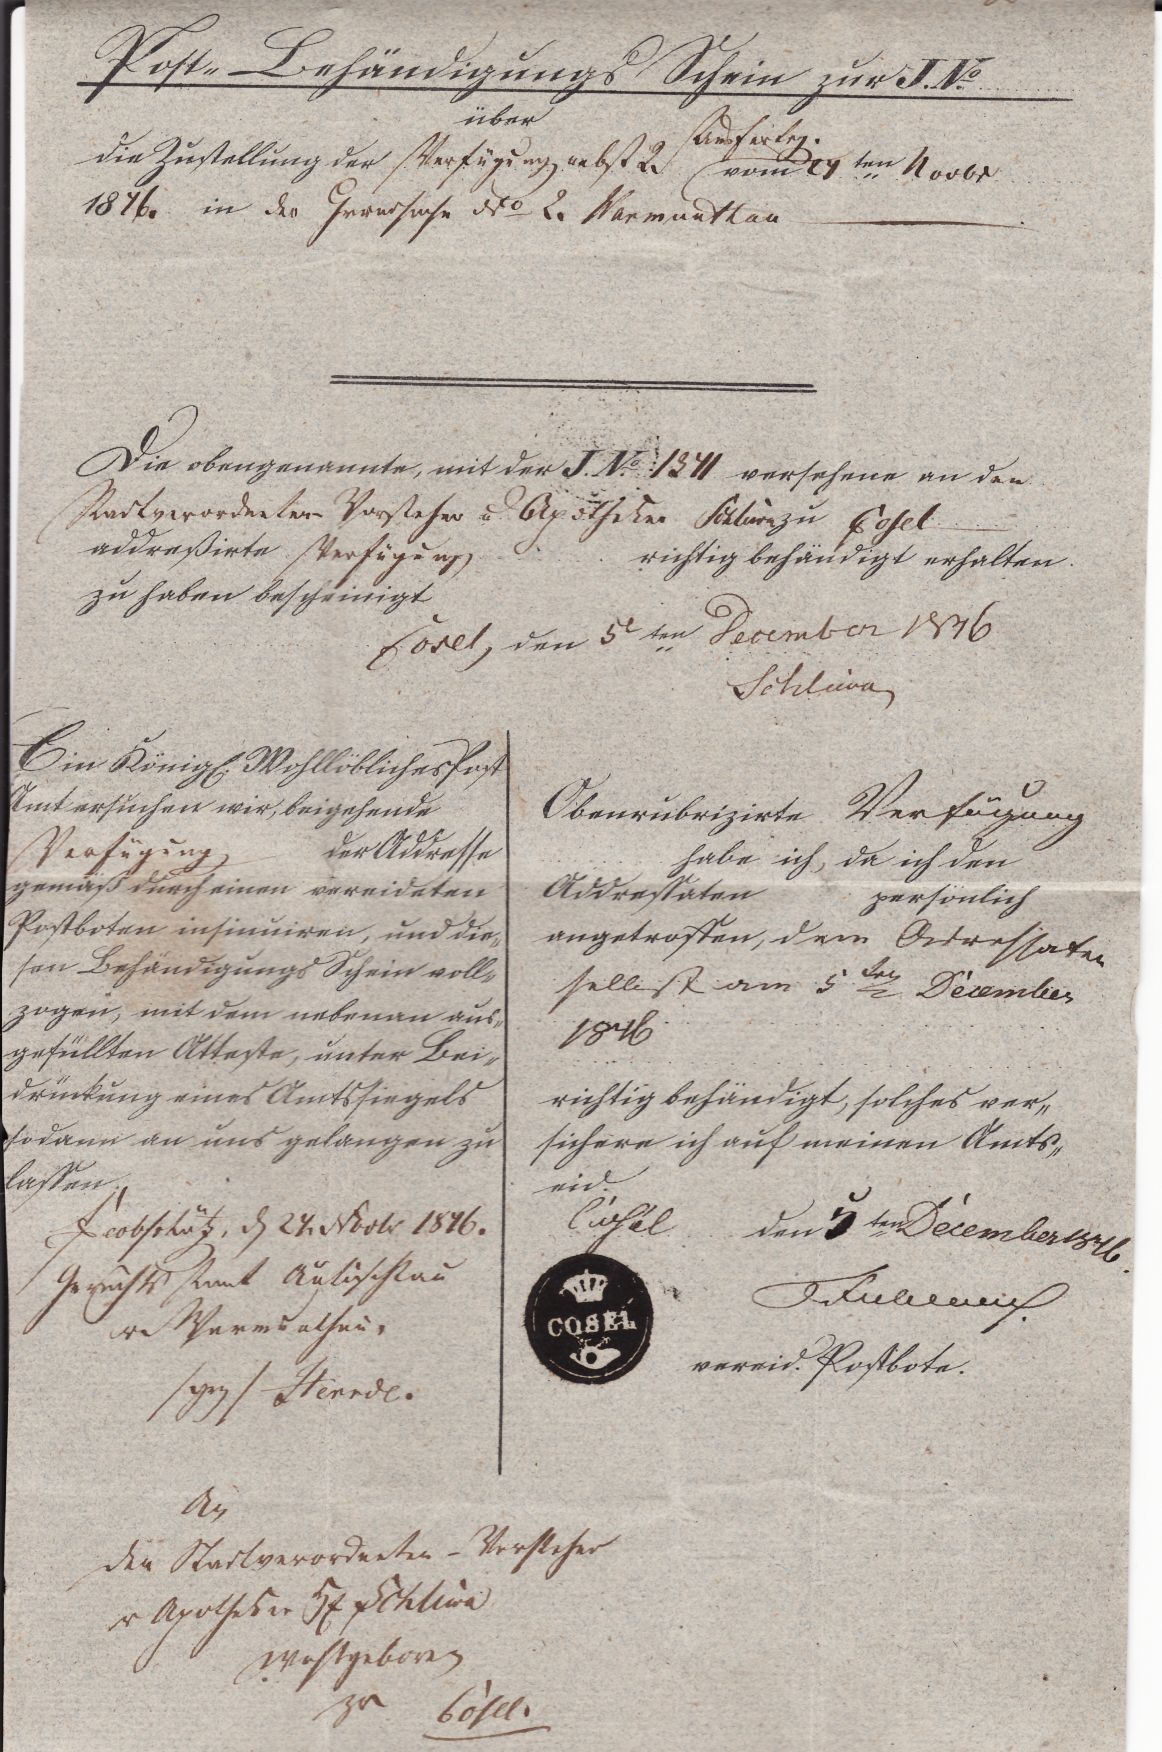 Post-Behändigungs Schein zur J. No
über
die Zustellung der Verfügung nebst 2 Ausfertig. vom 24ten Novbr
1846. in der No 2. Warmunthau
Die obengenannte, mit der J. No. 1371 versehene an den
Stadtverordneten Vorsteher u Apotheker Schliwa zu Cosel
addreßirte Verfügung richtig behändigt erhalten
zu haben bescheinigt
Cosel, den 5ten December 1846
Schliwa
Ein Königl. Wohllöbliches Post
Amt ersuchen wir, beigehende
Verfügung der Addresse
gemäß durch einen vereideten
Postboten insinuiren, und die„
sen Behändigungs Schein voll„
zogen, mit dem nebenan aus„
gefüllten Atteste, unter Bei„
drückung eines Amtssiegels
sodann an uns gelangen zu
lassen.
Leobschütz, d 24. Novbr 1846.
Gerichts Amt Autischkau
Warmunthau.
Obenrubrizirte Verfügung
habe ich, da ich den
Addressaten persönlich
angetroffen, dem Adressaten
selbst am 5ten December
1846
richtig behändigt, solches ver„
sichere ich auf meinen Amts„
eid.
Cosel den 5ten December 1846.
COSEL
vereid. Postbote.
An
den Stadtverordneten-Vorsteher
Apotheker H Schliwa
Wohlgeboren
zu Cosel.